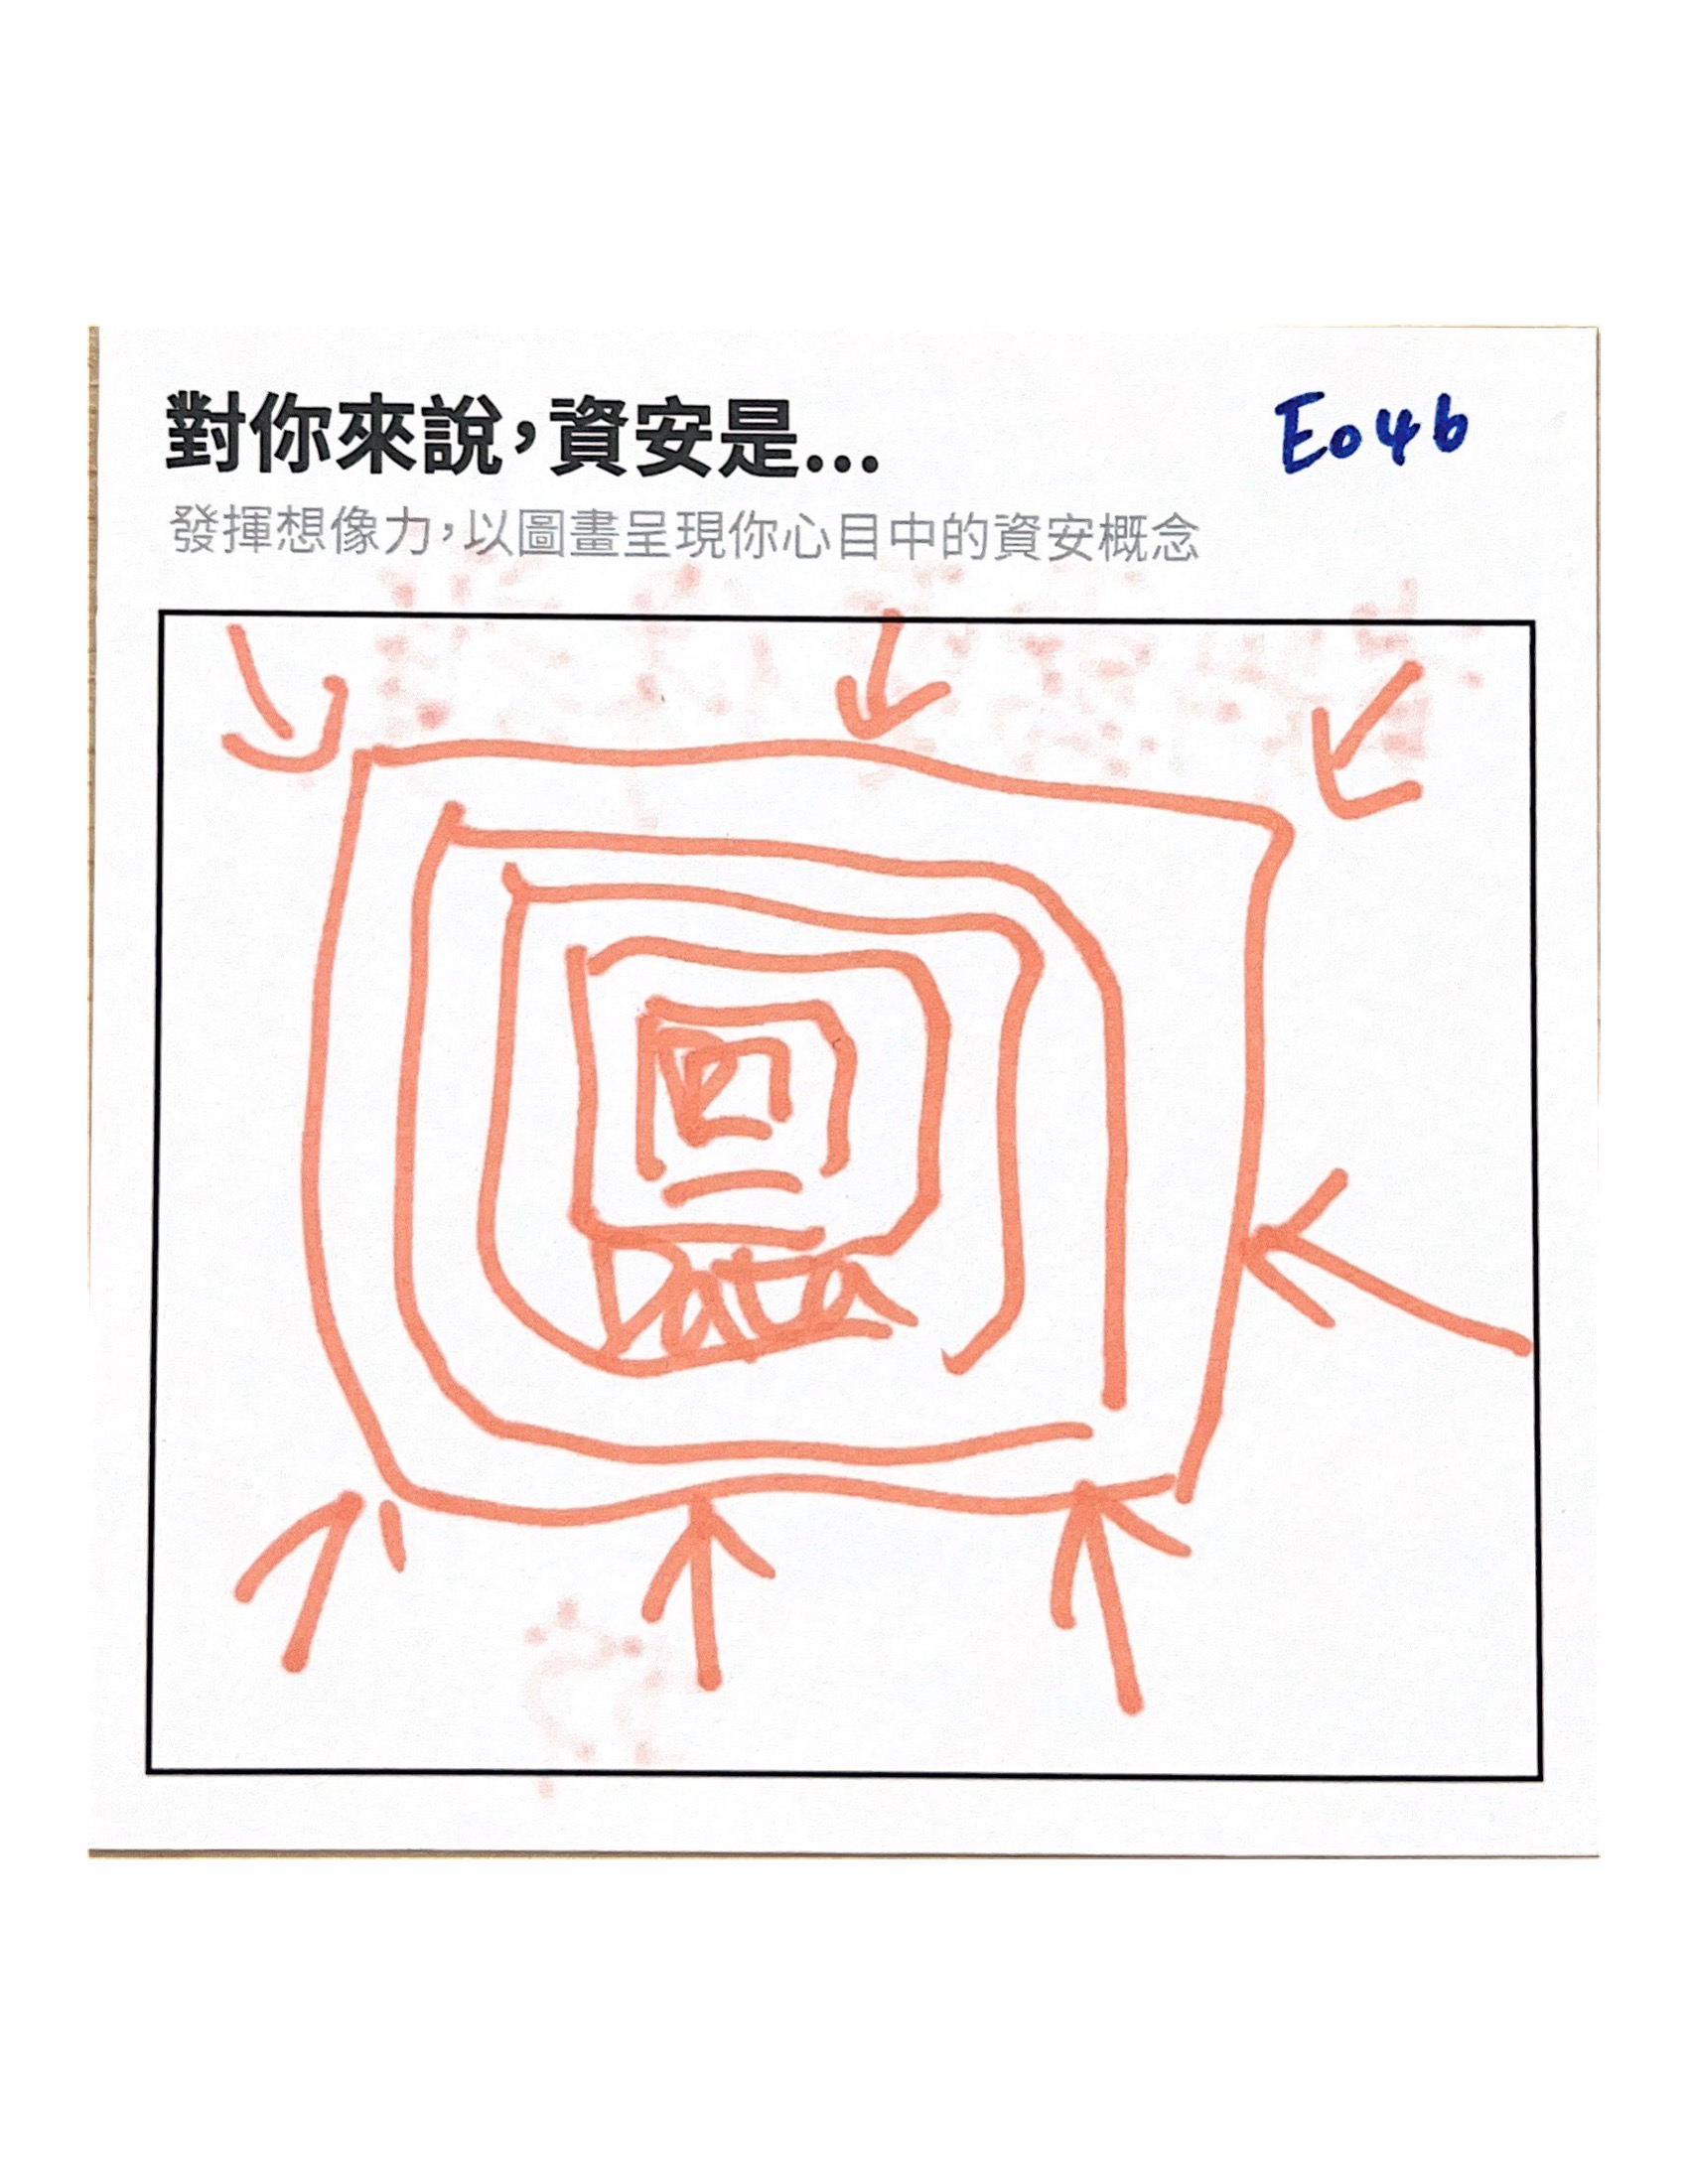 對你來說，資安是...
E046
發揮想像力，以圖畫呈現你心目中的資安概念
Data